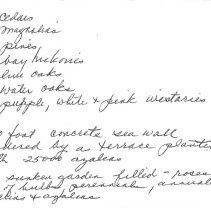 Cedars
Magnolias
pines
bay
oaks
water oaks
white & pink wisterias
foot concrete sea wall
by a terrace planted
25000 azaleas
sunken garden filled - roses
bulbs, perennials, annual
& azaleas